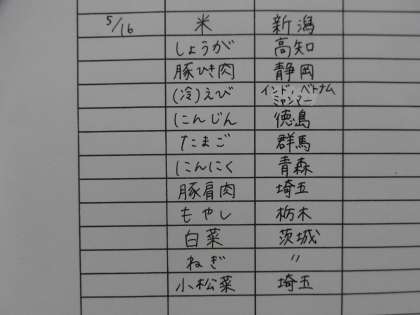 5/16 米 新潟
しょうが 高知
豚ひき肉 静岡
(冷)えび インド、ベトナム
ミャンマー
にんじん 徳島
たまご 群馬
にんにく 青森
豚肩肉 埼玉
もやし 栃木
白菜 茨城
ねぎ 〃
小松菜 埼玉